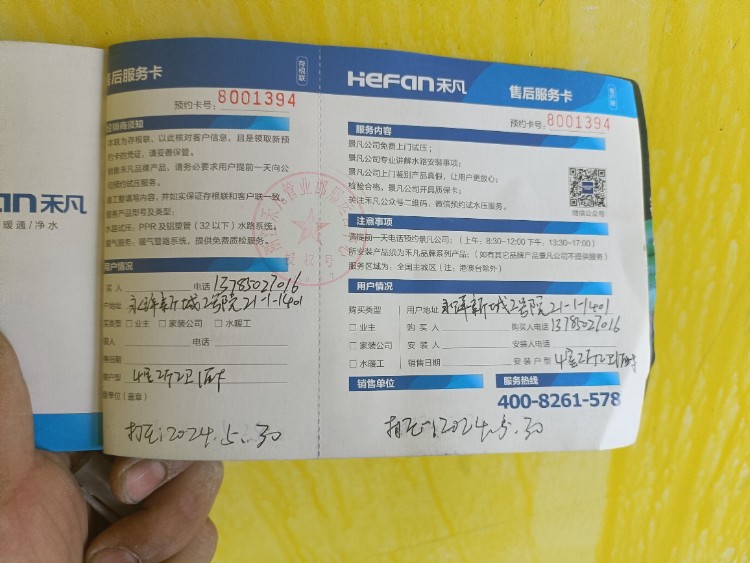 HeFan禾凡
暖通/净水
售后服务卡
存根联
预约卡号: 8001394
经销商须知
本联为存根联，以此核对客户信息，且是领取新预
约卡的凭证，请妥善保管。
销售禾凡品牌产品，请务必要求用户提前一天向公
司预约试压服务。
用户情况
电话 13785027016
户地址 永洋新城2号院21-1-1401
买类型 □ 业主 □ 家装公司 □ 水暖工
电话
4室2厅2卫1厨
打压:2024.5.30
HeFan禾凡
售后服务卡
客户联
预约卡号: 8001394
服务内容
景凡公司免费上门试压；
景凡公司专业讲解水路安装事项；
景凡公司上门鉴别产品真假，让用户更放心；
检验合格，景凡公司开具质保卡；
关注禾凡公众号二维码，微信预约试水压服务。
微信公众号
注意事项
需提前一天电话预约景凡公司：（上午：8:30-12:00 下午：13:30-17:00）
所安装产品须为禾凡品牌系列产品；（如有其它品牌产品景凡公司不提供服务）
服务区域为：全国主城区（注：港澳台除外）
用户情况
购买类型 用户地址 永洋新城2号院21-1-1401
□ 业主 购 买 人 购买人电话 13785027016
□ 家装公司 安 装 人 安装人电话
□ 水暖工 销售日期 安 装 户 型 4室2厅2卫1厨
销售单位 服务热线
400-8261-578
打压:2024.5.30